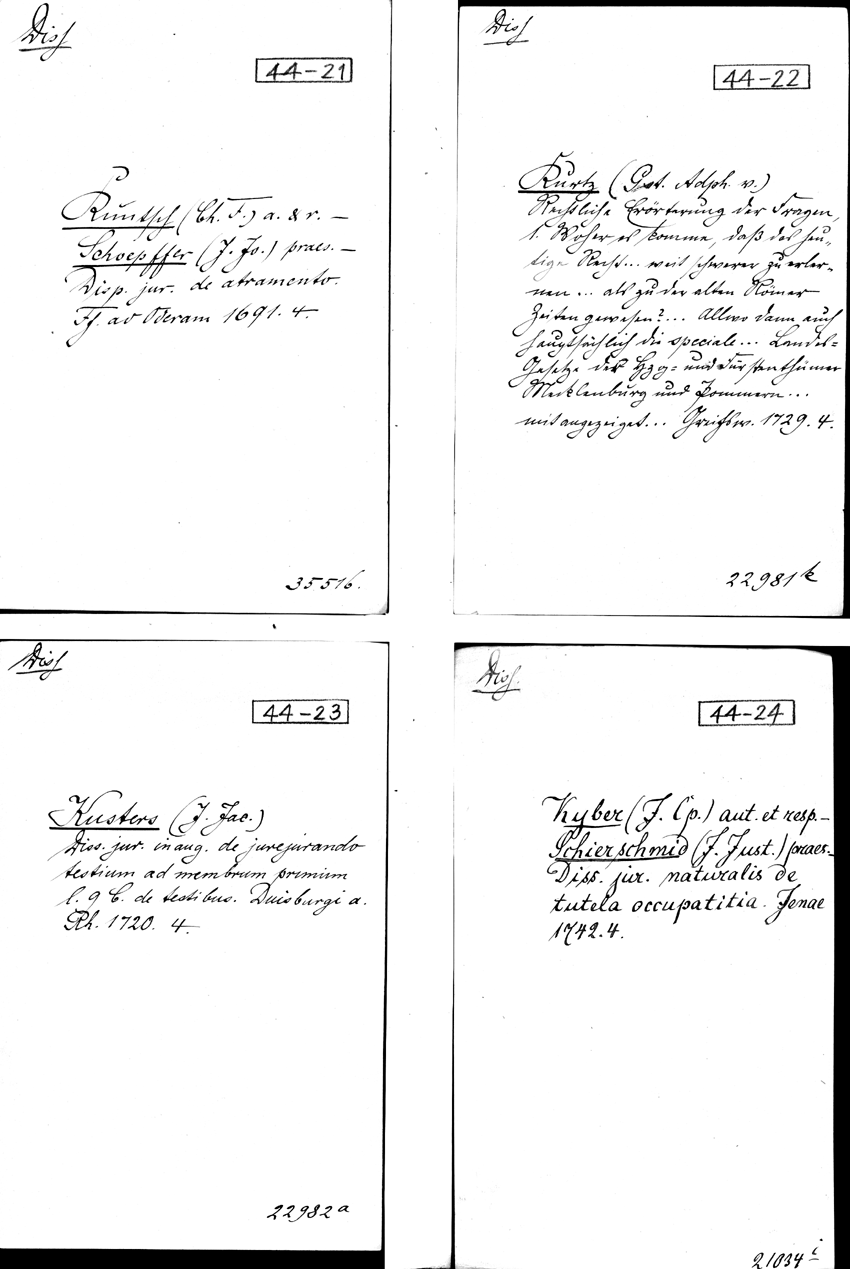 Diss
44-21
Kuntsch (Ch. F.) a. & r. —
Schoepffer (J. Jo.) praes. —
Disp. jur. de atramento.
Ff. ad Oderam 1691. 4.
35516.
Diss
44-22
Kurtz (Gst. Adph. v.)
Rechtliche Erörterung der Fragen,
1. Woher es komme, daß das heu-
tige Recht... weit schwerer zu erler-
nen... als zu der alten Römer
Zeiten gewesen?... Allwo dann auch
hauptsächlich die speciale... Landes-
Gesetze der Hzg- und Fürstenthümer
Mecklenburg und Pommern...
mit angezeiget... Greifsw. 1729. 4.
22981 k
Diss
44-23
Kusters (J. Jac.)
Diss. jur. inaug. de jurejurando
testium ad membrum primum
l. 9 C. de testibus. Duisburgi a.
Rh. 1720. 4.
22982 a
Diss.
44-24
Kyber (J. Cp.) aut. et resp. —
Schierschmid (J. Just.) praes. —
Diss. jur. naturalis de
tutela occupatitia. Jenae
1742. 4.
21034 i